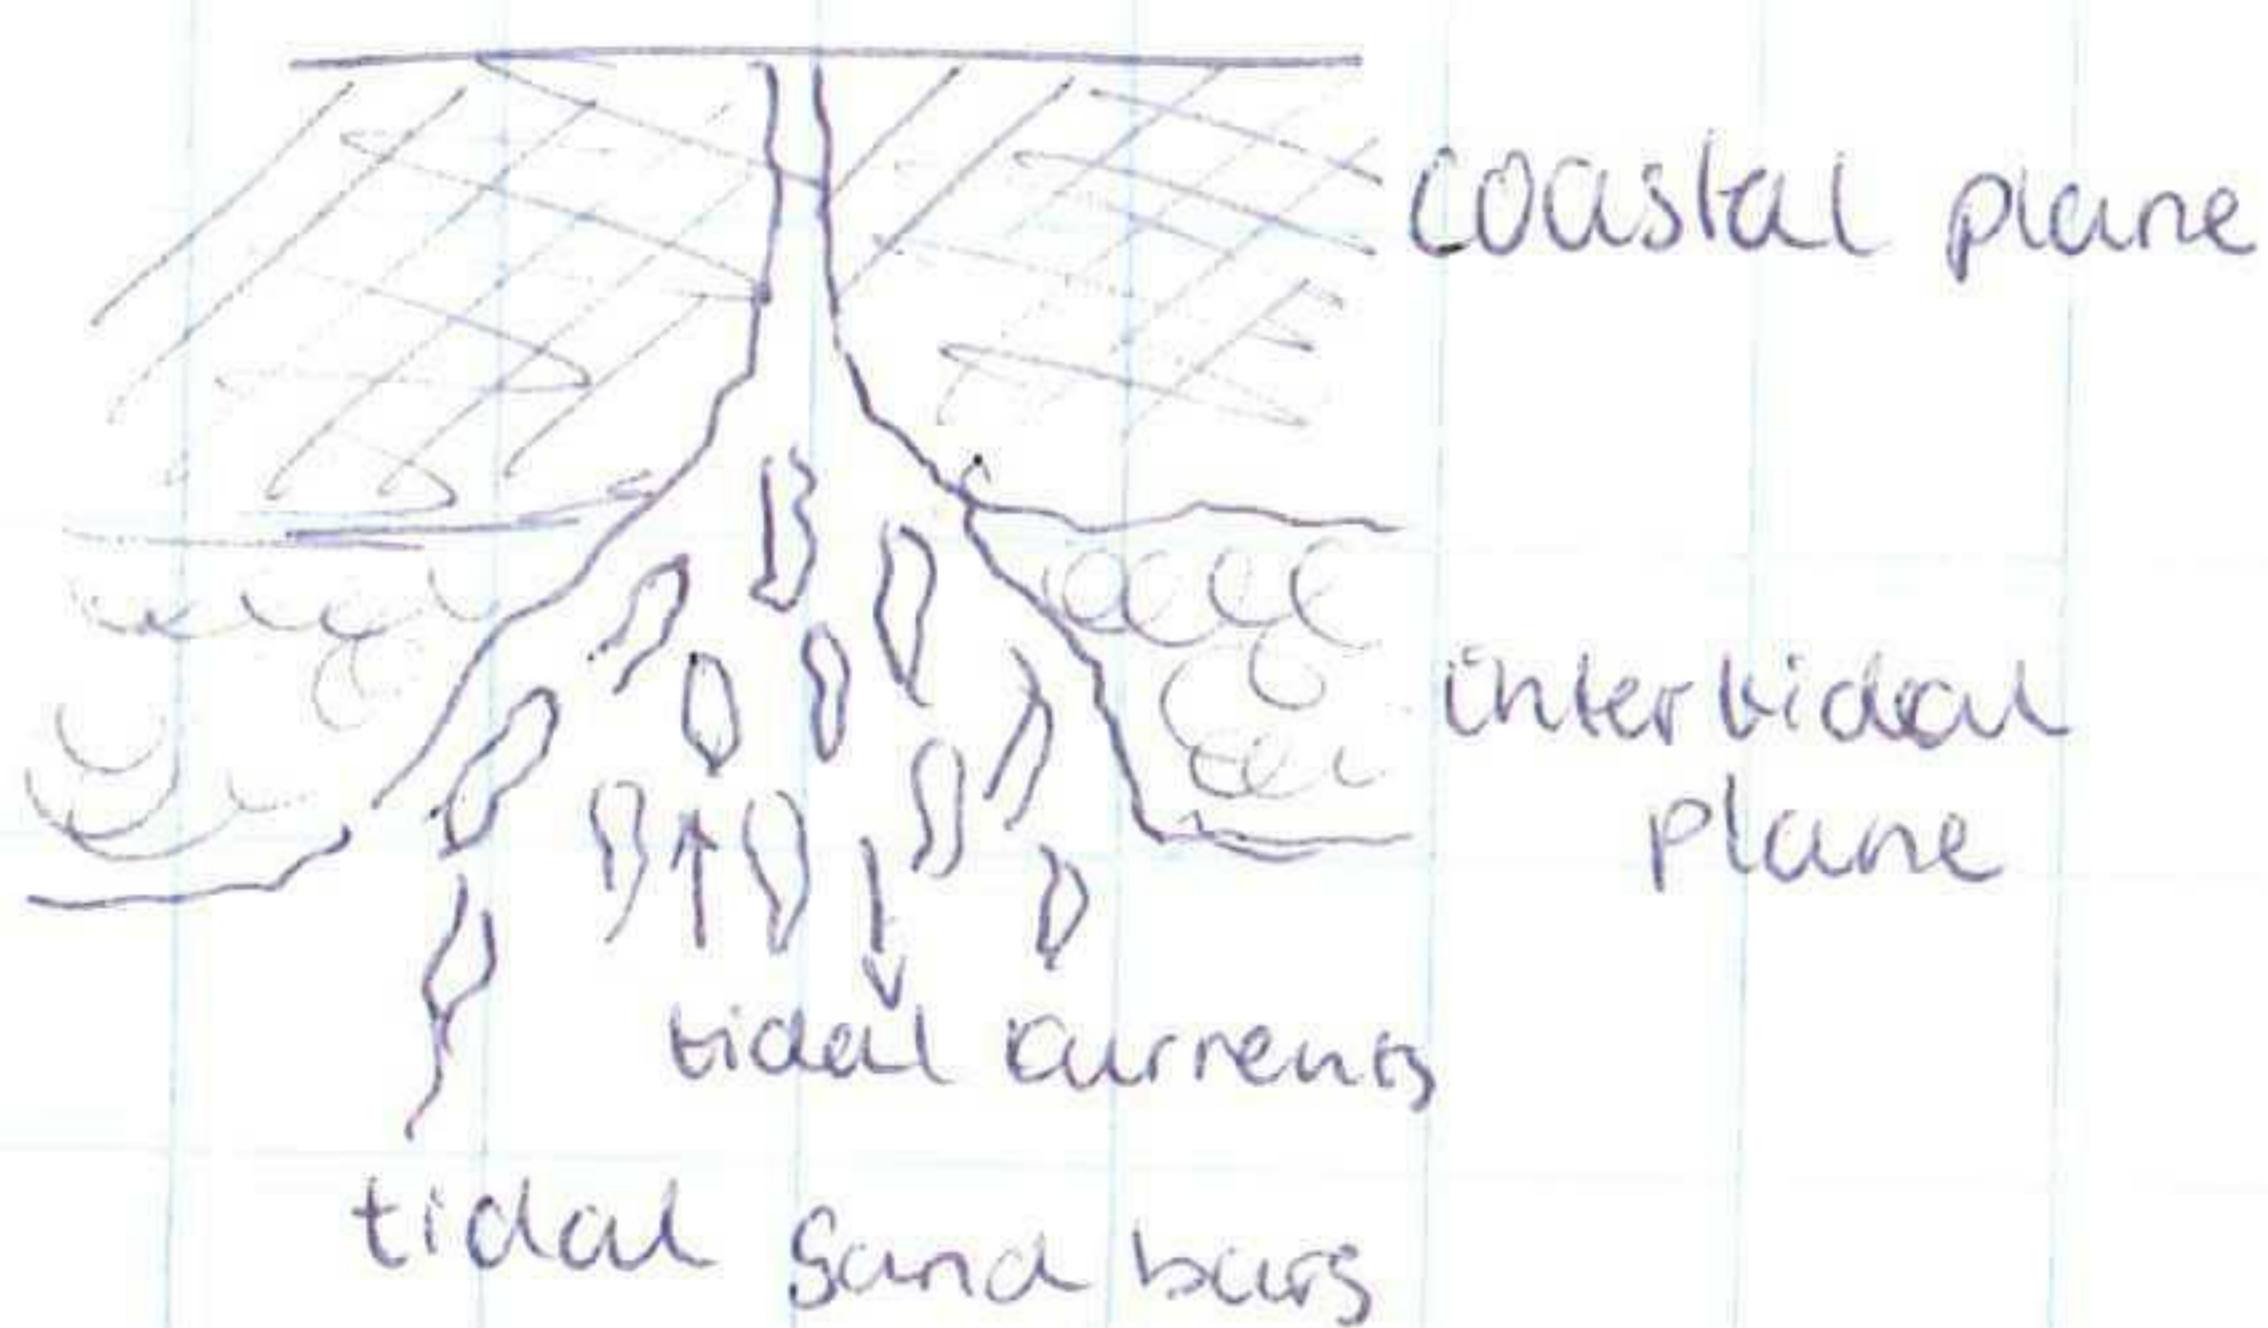 coastal plane
intertidal
plane
tidal currents
tidal sand bars